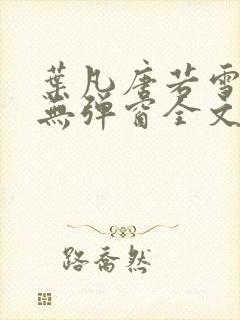 葉凡唐若雪
無彈窗全文
路喬然